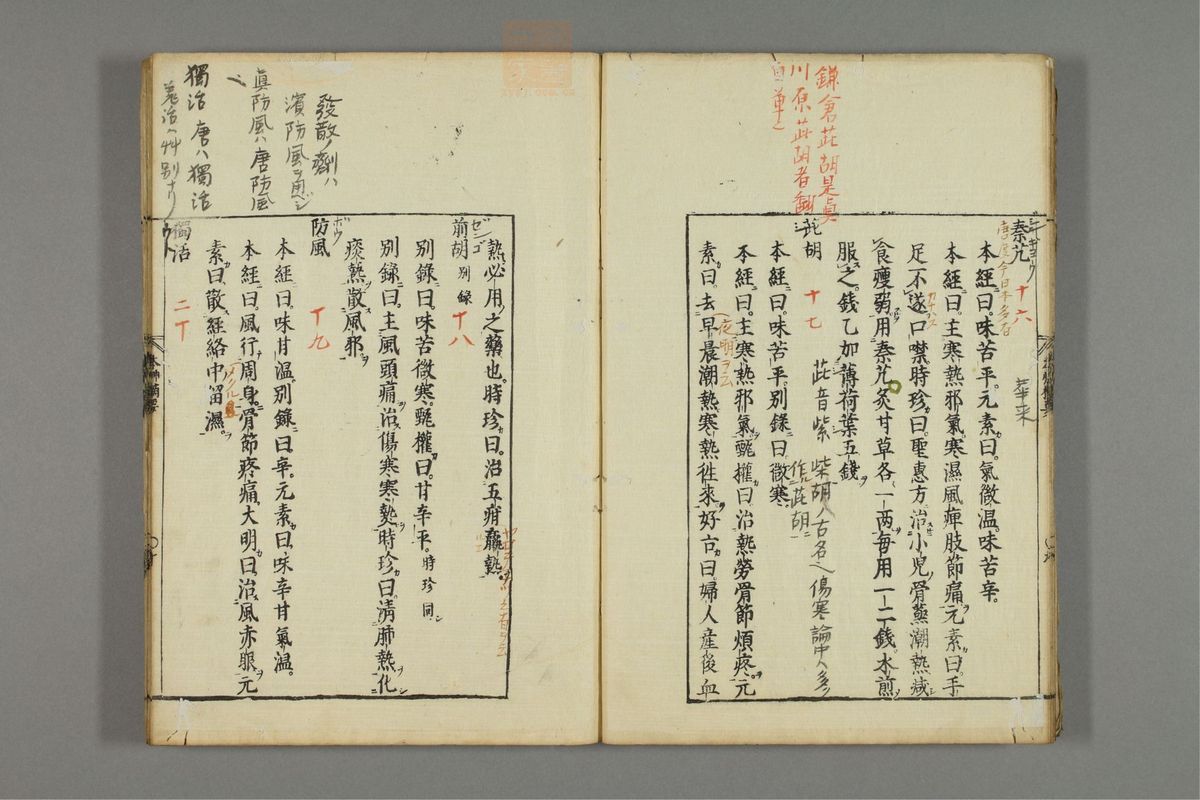 鎌倉茈胡是真
川原茈胡者
秦艽 十六
本經曰。味苦平。元素曰。氣微温。味苦辛。
本經曰。主寒熱邪氣。寒濕風痺肢節痛。元素曰。手
足不遂。口噤。時珍曰。聖惠方。治小児骨蒸潮熱。減
食瘦弱。用秦艽炙甘草各一两。毎用一二錢。水煎
服之。錢乙加薄荷葉五錢。
茈胡 十七 茈音紫 柴胡ハ古名也傷寒論中ハ多ク
作茈胡
本經曰。味苦平。別錄曰。微寒。
本經曰。主寒熱邪氣。甄權曰。治熱勞骨節煩疼。元
素曰。去早晨潮熱。寒熱徃來。好古曰。婦人産後血
熱必用之藥也。時珍曰。治五疳羸熱。
發散ノ劑ハ
濱防風
眞防風ハ唐防風
獨活 唐ハ獨活
ゼンゴ
前胡 別錄 十八
別錄曰。味苦微寒。甄權曰。甘辛平。時珍同
別錄曰。主風頭痛。治傷寒寒熱。時珍曰。淸肺熱。化
痰熱。散風邪。
ボウ
防風 十九
本經曰。味甘温。別錄曰。辛。元素曰。味辛甘氣温。
本經曰。風行周身。骨節疼痛。大明曰。治風赤眼。元
素曰。散經絡中留濕。
獨活 二十